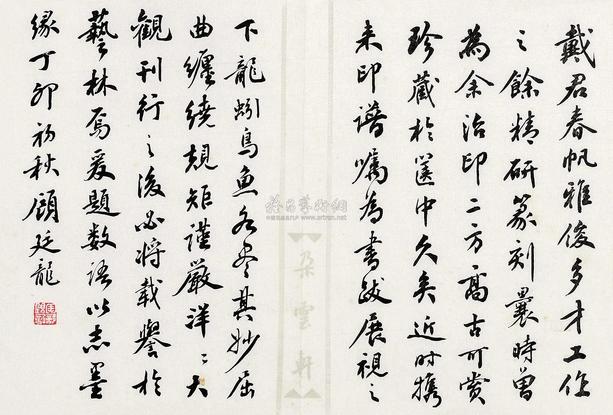 戴君春帆雅俊多才工作
之餘精研篆刻曩時曾
為余治印二方高古可賞
珍藏於篋中久矣近时携
来印谱嘱為書跋展視之
下龍蚓鳥魚各尽其妙屈
曲纏繞規矩謹嚴洋々大
觀刊行之後必将載譽於
藝林焉爰題數語以志墨
缘丁卯初秋顾廷龍
朵雲軒